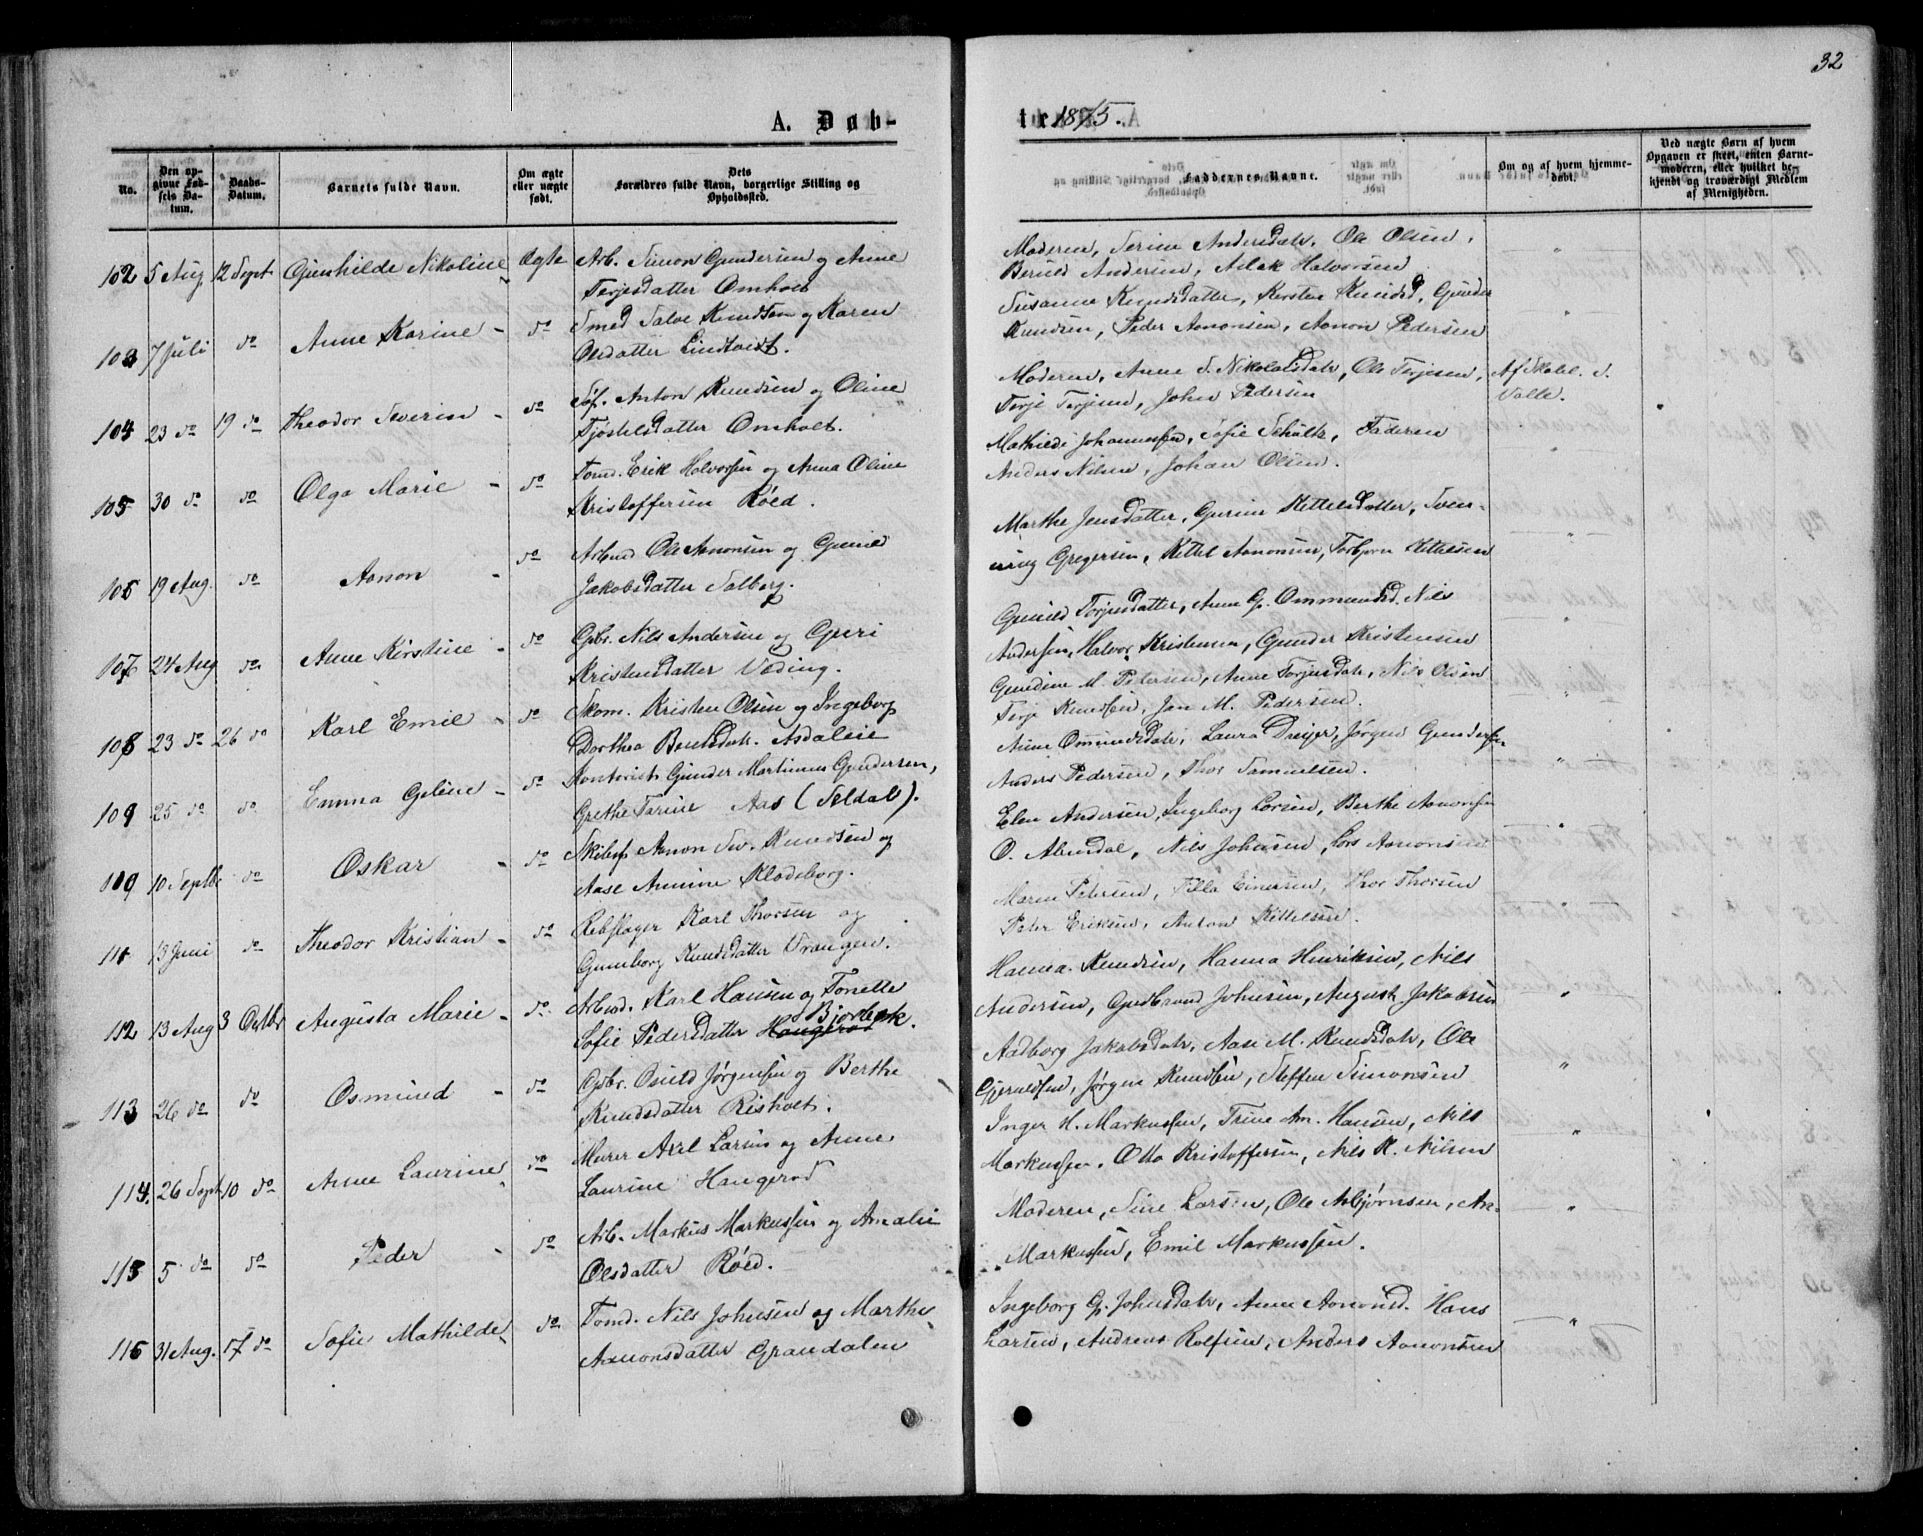 32
A. Døb-
tr 1875.
No.
Den op-
givne Fød-
sels Da-
tum.
Daabs-
Datum.
Barnets fulde Navn.
Om ægte
eller uægte
født.
Dets
Forældres fulde Navn, borgerlige Stilling og
Opholdssted.
Faddernes Navne.
Om og af hvem hjemme-
døbt.
Ved uægte Børn af hvem
Opgaven er skeet, enten Barne-
moderen, eller hvilket be-
kjendt og troværdigt Medlem
af Menigheden.
102 5 Aug. 12 Sept Gunhilde Nikoline Ægte Arb. Simon Gundersen og Anne
Terjesdatter Omholt
Moderen, Serine Andersdatr, Ole Olsen,
Beruld Andersen, Aslak Halvorsen "
103 7 Juli do Anne Karine - do Smed Salve Knudsen og Karen
Olsdatter Lindtveit.
Susanne Knudsdatter, Kirsten Knudsd, Gunder
Knudsen, Peder Aanonsen, Aanon Pedersen "
104 23 do 19 do Theodor Severin - do Søf. Anton Knudsen og Oline
Tjøstelsdatter Omholt.
Moderen, Anne S. Nikolaisdatr, Ole Terjesen,
Terje Terjesen, John Pedersen
Af Skolel. S.
Valle.
105 30 do do Olga Marie - do Tømd. Erik Halvorsen og Anna Oline
Kristoffersen Røed.
Mathilde Johannessen, Sofie Schultz, Faderen
Anders Nilsen, Johan Olsen.
106 19 Aug. do Aanon - do Arbmd Ole Aanonsen og Gunild
Jakobsdatter Solberg.
Marthe Jensdatter, Gurine Kittelsdatter, Sven-
ning Gregersen, Kittel Aanonsen, Torbjørn Kittelsen
107 24 Aug do Anne Kirstine - do Gbr. Nils Andersen og Guri
Kristensdatter Veding.
Gunild Torjusdatter, Anne G. Ommundsd. Nils
Andersen, Halvor Kristensen, Gunder Kristensen
108 23 do 26 do Karl Emil - do Skom. Kristen Olsen og Ingeborg
Dorthea Bentsdatr. Asdalsie
Gundine M. Petersen, Anne Torjusdatr, Nils Olsen
Terje Knudsen, Jon M. Pedersen.
109 25 do do Emma Geline - do Kontorist Gunder Martinius Gundersen,
Grethe Tarine Aas (Seldal).
Anne Ommundsdatr, Laura Dreyer, Jørgen Gundersen
Anders Pedersen, Thor Samuelsen.
110 10 Septbr do Oskar - do Skibsf Aanon Sev. Knudsen og
Aase Annine Klodeborg.
Elen Andersen, Ingeborg Larsen, Berthe Aanonsen
O. Alvedal, Nils Johnsen, Lars Aanonsen
111 13 Juni do Theodor Kristian - do Rebslager Karl Thorsen og
Gunneborg Knudsdatter Vrangen.
Maren Petersen, Tilla Einersen, Thor Thorsen
Peter Eriksen, Anton Kittelsen.
112 13 Aug 3 Octbr Augusta Marie - do Arbmd. Karl Hansen og Tonette
Sofie Pedersdatter Haugerød Bjorbæk.
Hanna Knudsen, Hanna Henriksen, Nils
Andersen, Gudbrand Johnsen, August Jakobsen "
113 26 do do Osmund - do Gbr. Osuld Jørgensen og Berthe
Knudsdatter Risholt.
Aadborg Jakobsdatr, Aase M. Knudsdatr, Ole
Gjeruldsen, Jørgen Knudsen, Steffen Simonsen "
114. 26 Sept 10 do Anne Laurine - do Murer Axel Larsen og Anne
Laurine Haugerød
Inger H. Markussen, Trine Am. Hansen, Nils
Markussen. Otto Kristoffersen, Nils K. Nilsen "
115 5 do do Peder - do Arb. Markus Markussen og Amalie
Olsdatter Røed.
Moderen, Sine Larsen, Ole Asbjørnsen, An.
Markussen, Emil Markussen.
116 31 Aug. 17 do Sofie Mathilde - do Tømd. Nils Johnsen og Marthe
Aanonsdatter Grandalen
Ingeborg G. Johnsdatr, Anne Aanonsd. Hans
Larsen, Andreas Rolfsen, Anders Aanonsen "